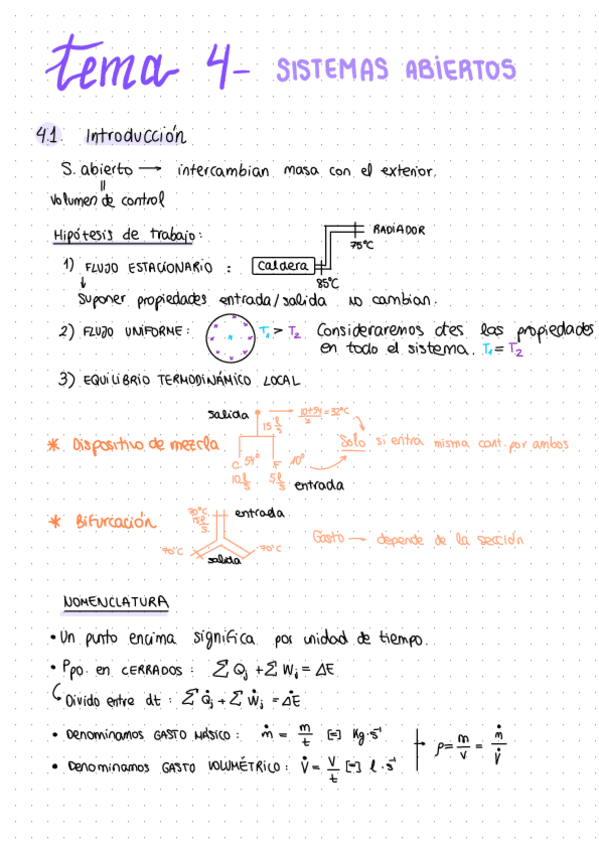 tema 4- SISTEMAS ABIERTOS
4.1. Introducción
S. abierto → intercambian masa con el exterior.
=
Volumen de control
Hipótesis de trabajo:
RADIADOR
75ºC
1) FLUJO ESTACIONARIO : Caldera
85ºC
↓
Suponer propiedades entrada/salida no cambian.
2) FLUJO UNIFORME: T₁ > T₂ Consideraremos ctes las propiedades
en todo el sistema. T₁ = T₂
3) EQUILIBRIO TERMODINÁMICO LOCAL
salida → (10+54)/2 = 32ºC
15 l/s
* Dispositivo de mezcla Solo si entra misma cant. por ambos
C. 54º F 10º
10 l/s 5 l/s entrada
70ºC entrada
15 l/s
* Bifurcación Gasto → depende de la sección
70ºC 70ºC
salida
NOMENCLATURA
• Un punto encima significa por unidad de tiempo.
• Ppo. en CERRADOS : ΣQj + ΣWj = ΔE
Divido entre dt : ΣQ̇j + ΣẆj = ΔĖ
• Denominamos GASTO MÁSICO: ṁ = m/t [=] Kg·s⁻¹
ρ = m/V = ṁ/V̇
• Denominamos GASTO VOLUMÉTRICO: V̇ = V/t [=] l·s⁻¹